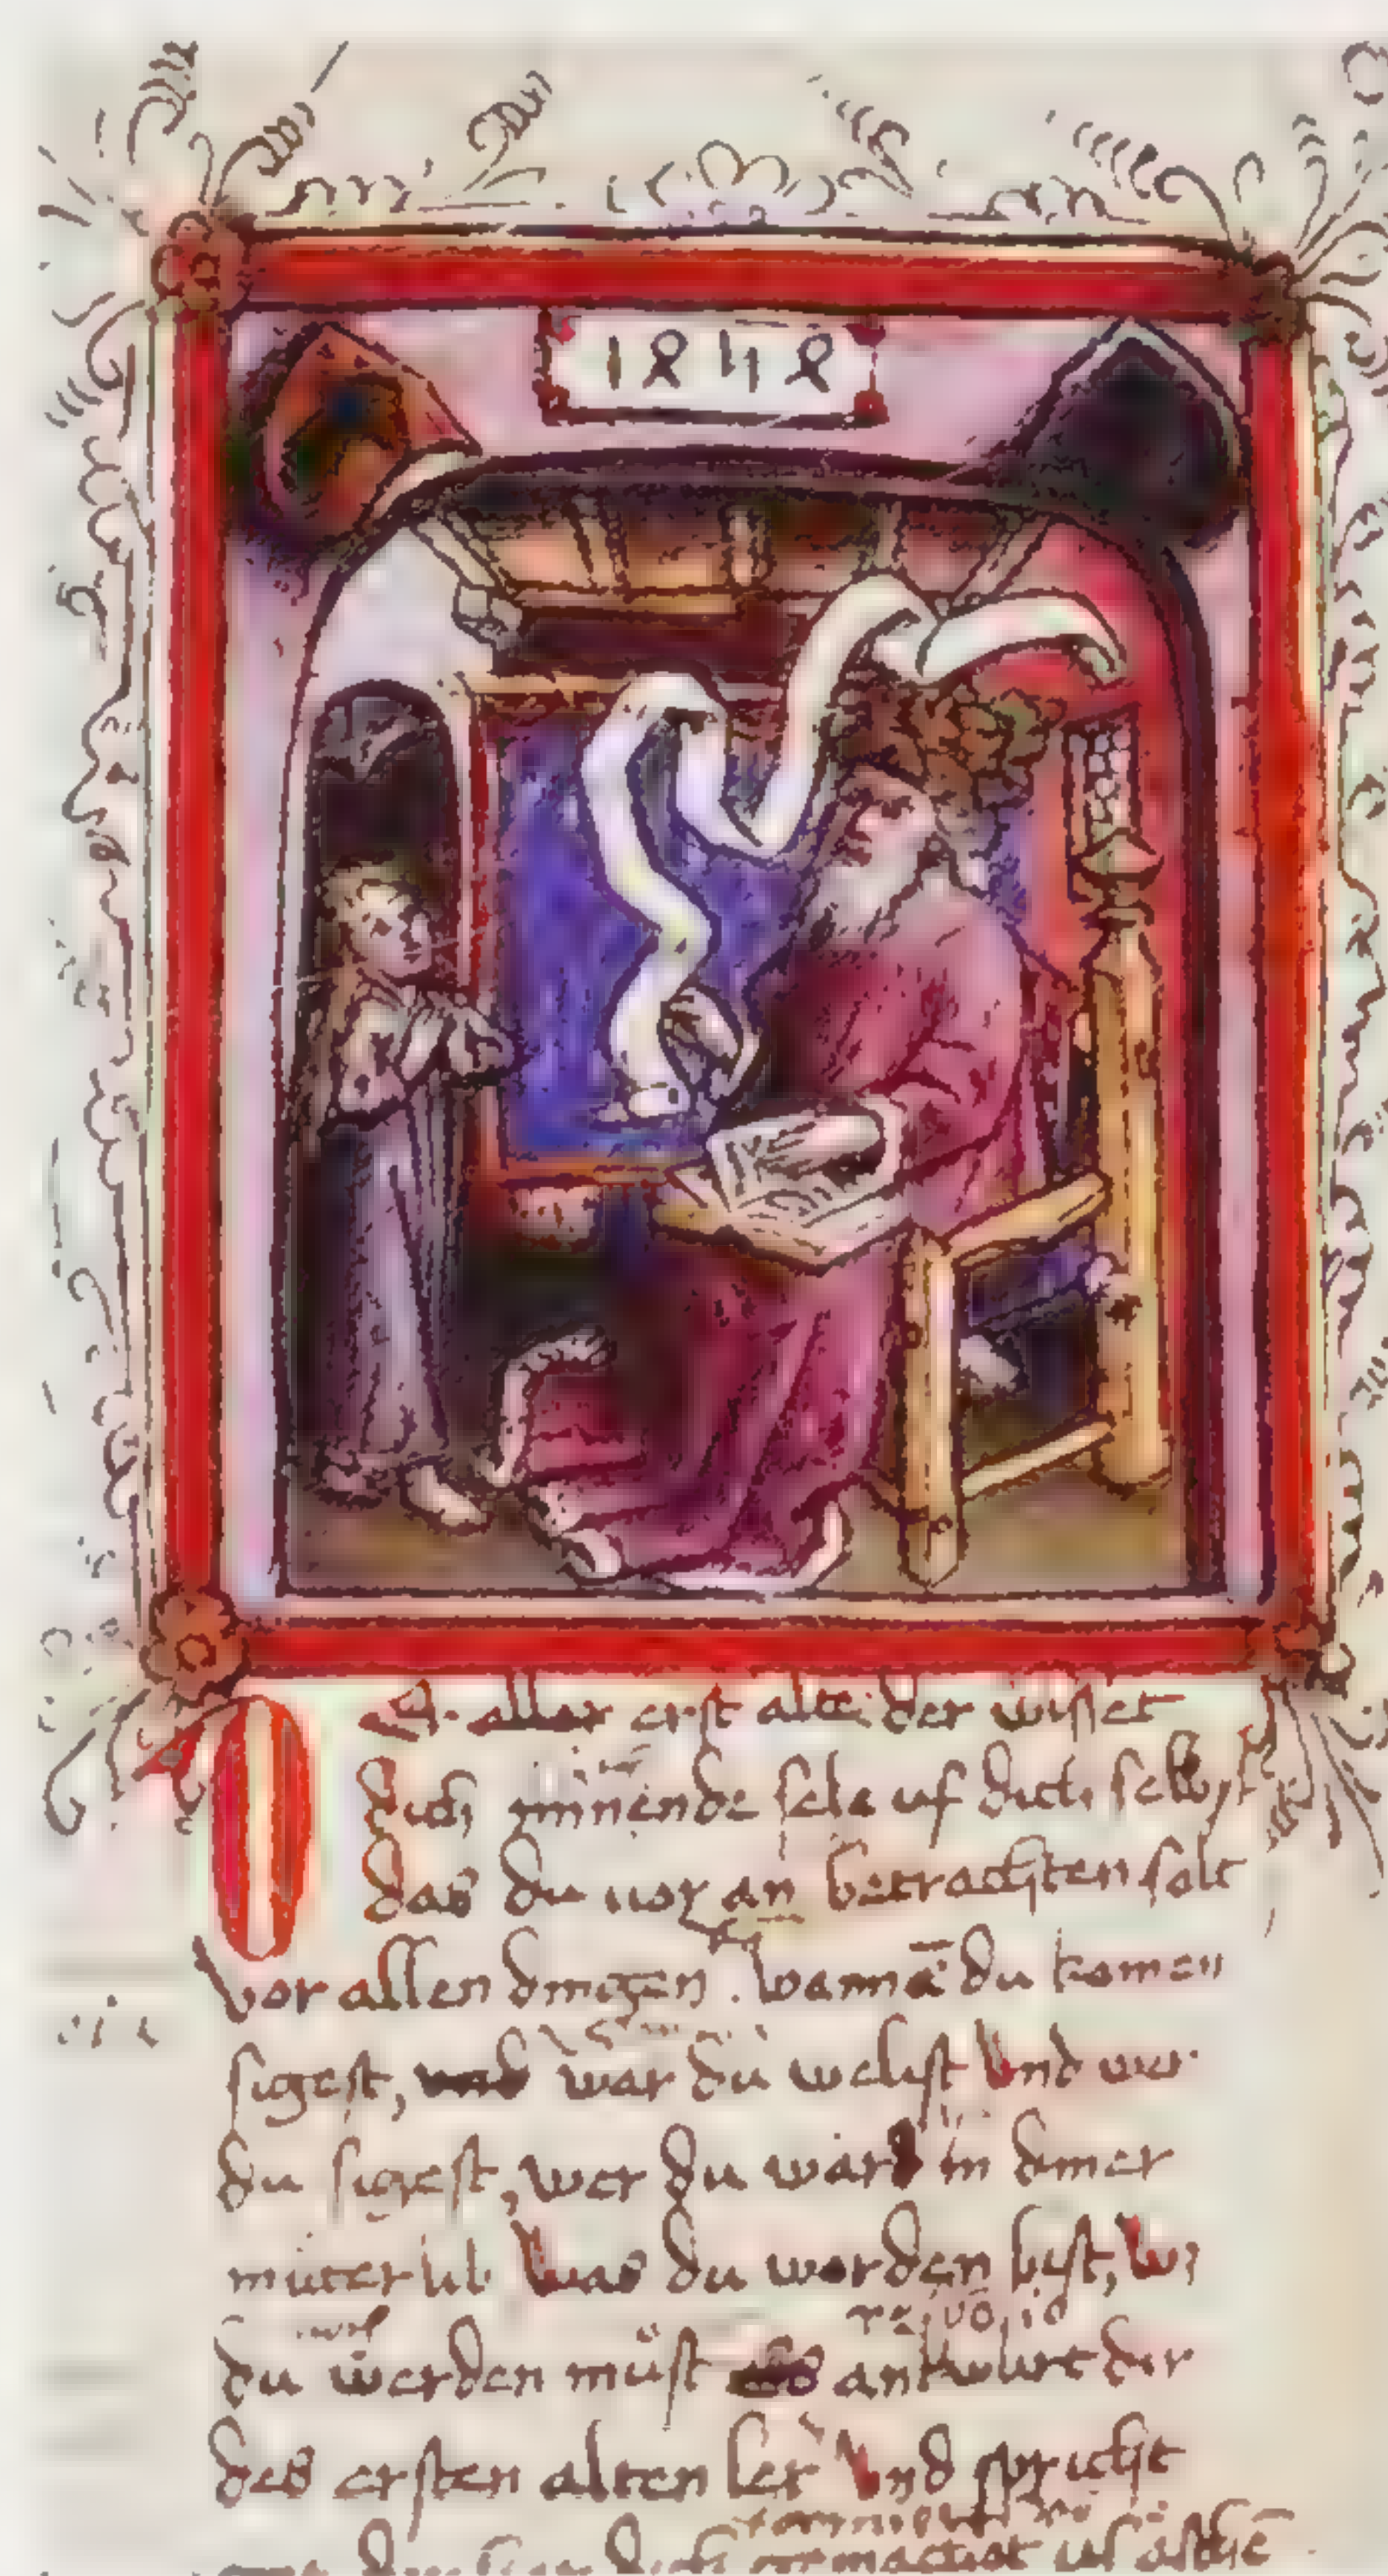 1848
Er aller erst alte der wiset
dich minende sele uf dich selbst
das du vor an betrachten solt
vor allen dingen . wannā du komen
sigest, war du welist Vnd wer
du sigest, wer du wart in diner
muter lib Was du worden bist, W
du werden můst antwurt dir
des ersten alten ler Vnd spricht